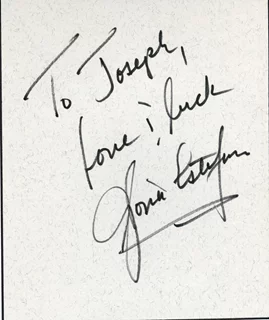 To Joseph,
Love & luck
Gloria Estefan